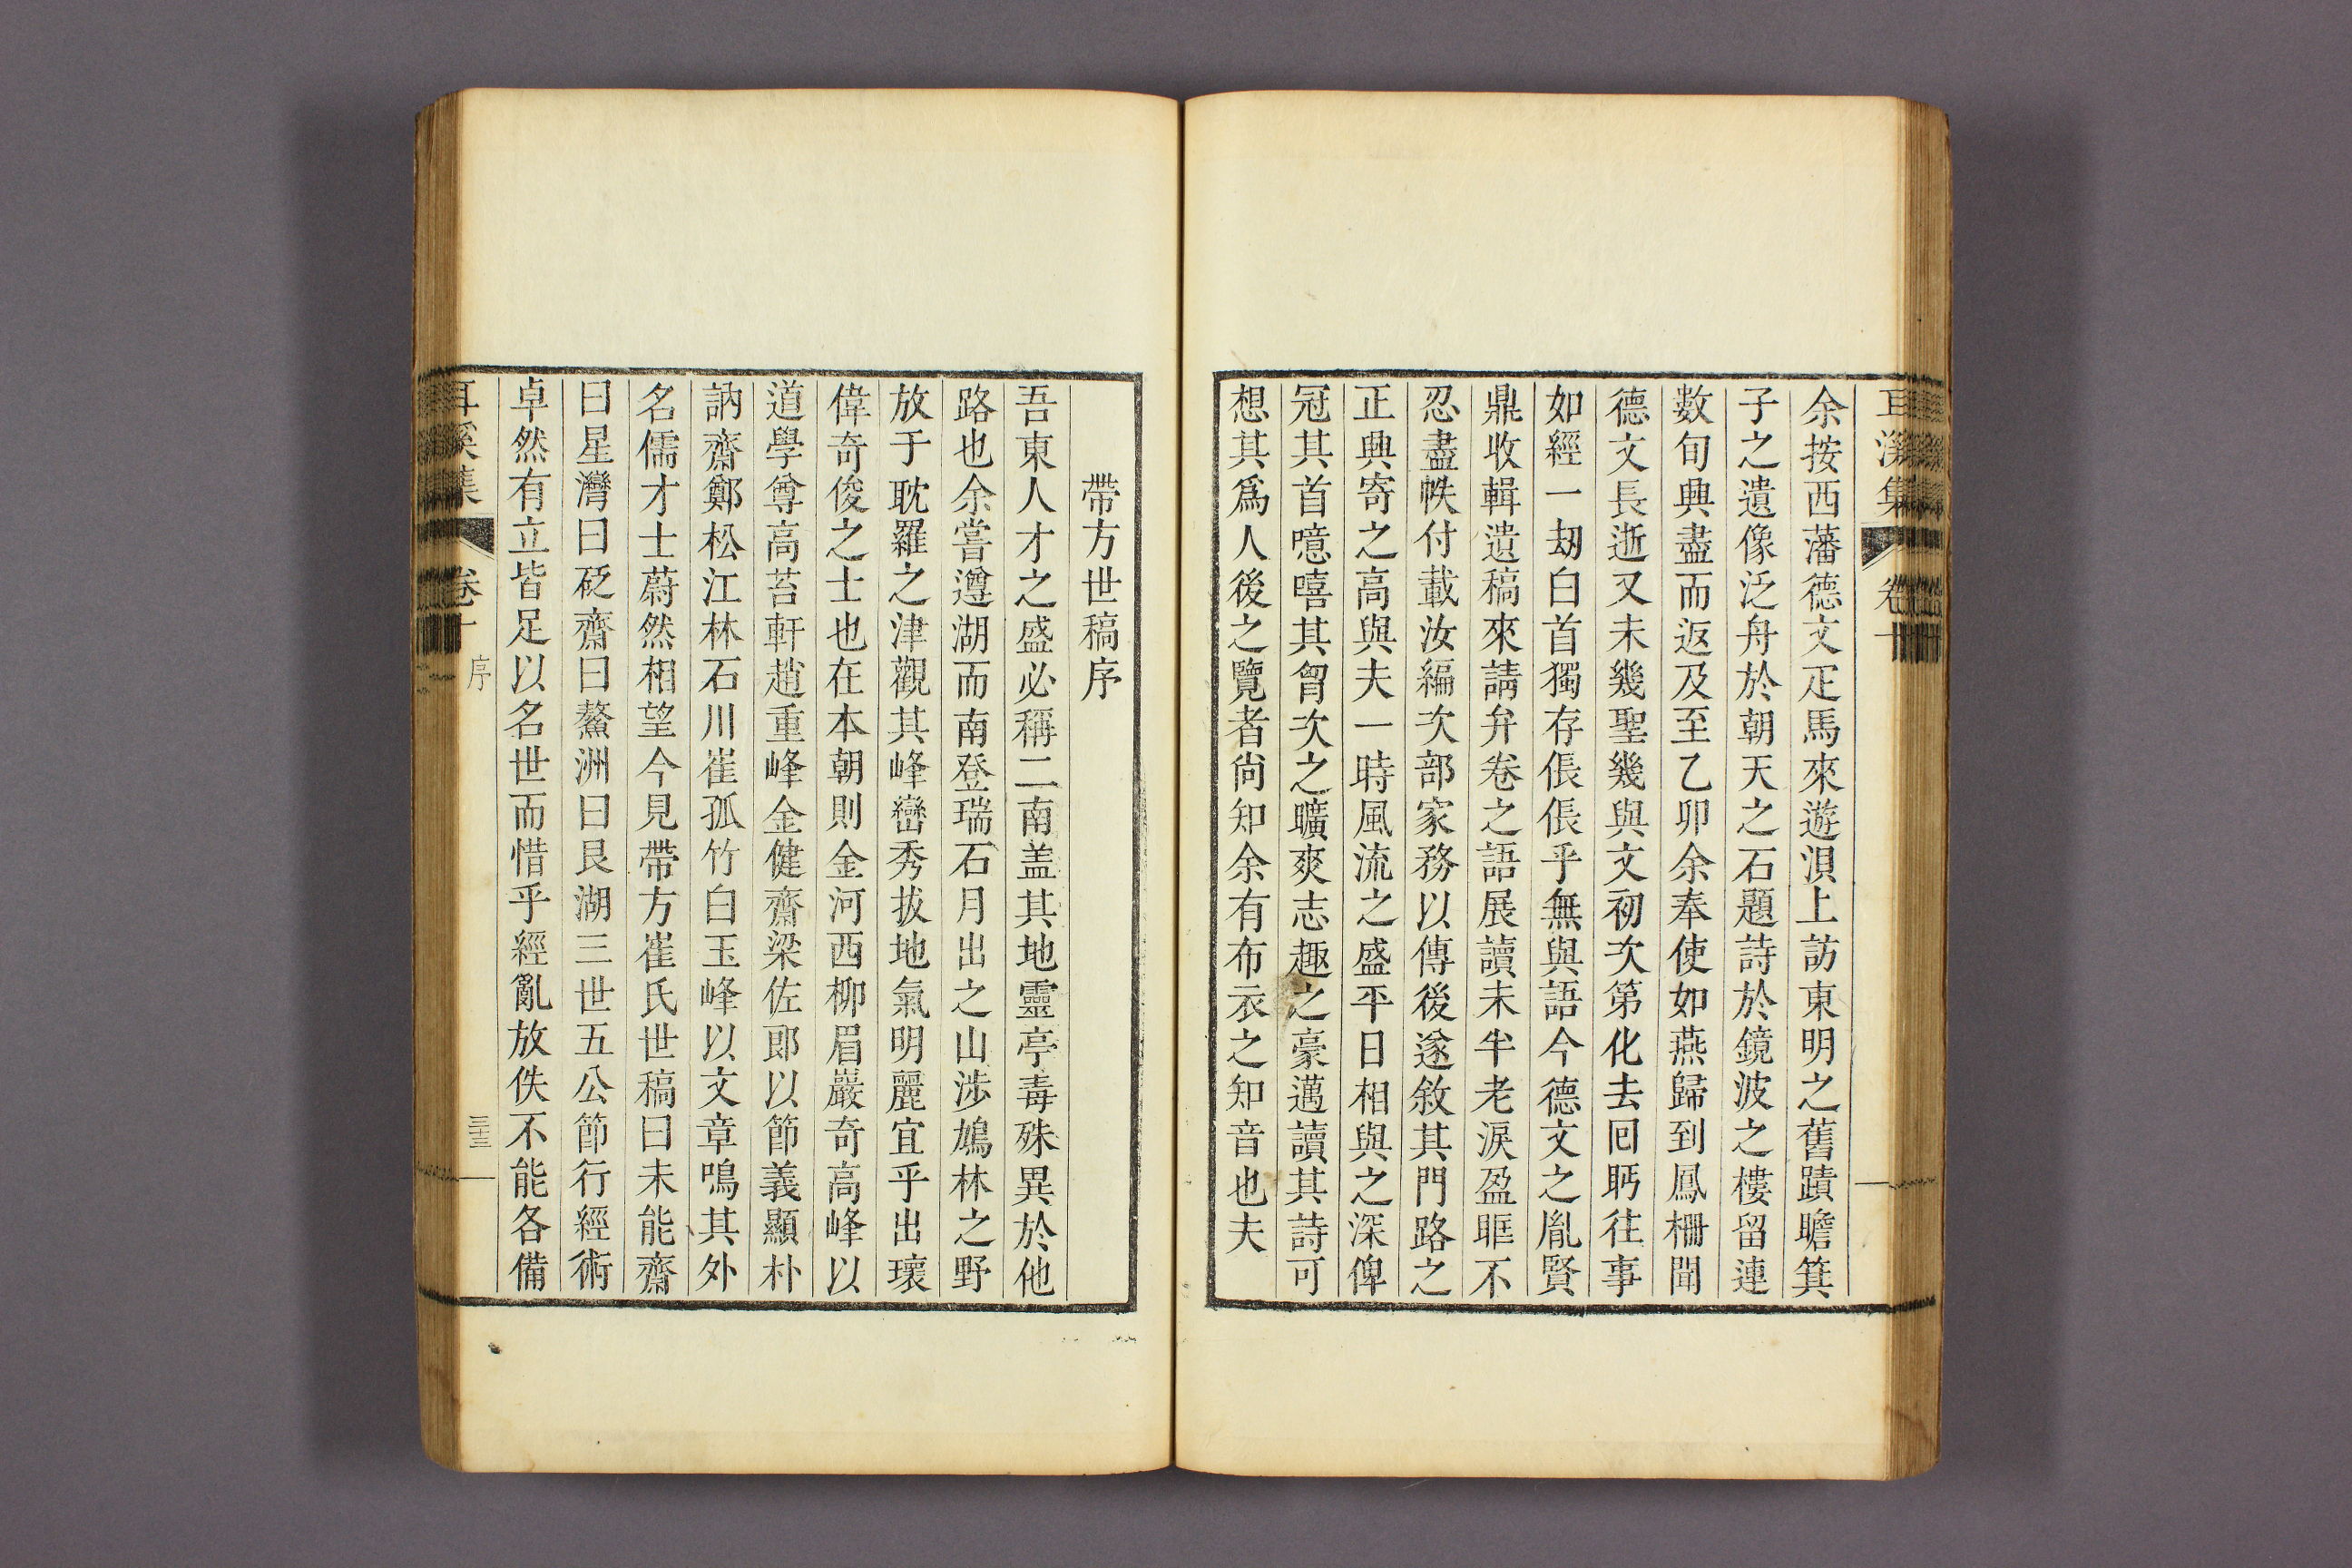 耳溪集 卷十
余按西藩德文疋馬來遊浿上訪東明之舊蹟瞻箕
子之遺像泛舟於朝天之石題詩於鏡波之樓留連
數旬興盡而返及至乙卯余奉使如燕歸到鳳柵聞
德文長逝又未幾聖幾與文初次第化去囘眄往事
如經一刼白首獨存倀倀乎無與語今德文之胤賢
鼎收輯遺稿來請弁卷之語展讀未半老淚盈眶不
忍盡帙付載汝編次部家務以傳後遂敘其門路之
正興寄之高與夫一時風流之盛平日相與之深俾
冠其首噫嘻其胷次之曠爽志趣之豪邁讀其詩可
想其爲人後之覽者尙知余有布衣之知音也夫
帶方世稿序
吾東人才之盛必稱二南盖其地靈亭毒殊異於他
路也余嘗遵湖而南登瑞石月出之山涉鳩林之野
放于耽羅之津觀其峰巒秀拔地氣明麗宜乎出瓌
偉奇俊之士也在本朝則金河西柳眉巖奇高峰以
道學尊高苔軒趙重峰金健齋梁佐郎以節義顯朴
訥齋鄭松江林石川崔孤竹白玉峰以文章鳴其外
名儒才士蔚然相望今見帶方崔氏世稿曰未能齋
曰星灣曰砭齋曰鰲洲曰艮湖三世五公節行經術
卓然有立皆足以名世而惜乎經亂放佚不能各備
耳溪集 卷十 序 三十三